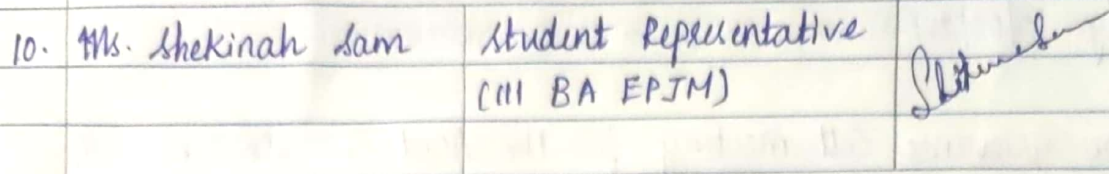 10. Ms. Shekinah Sam Student Representative
(III BA EPJM)